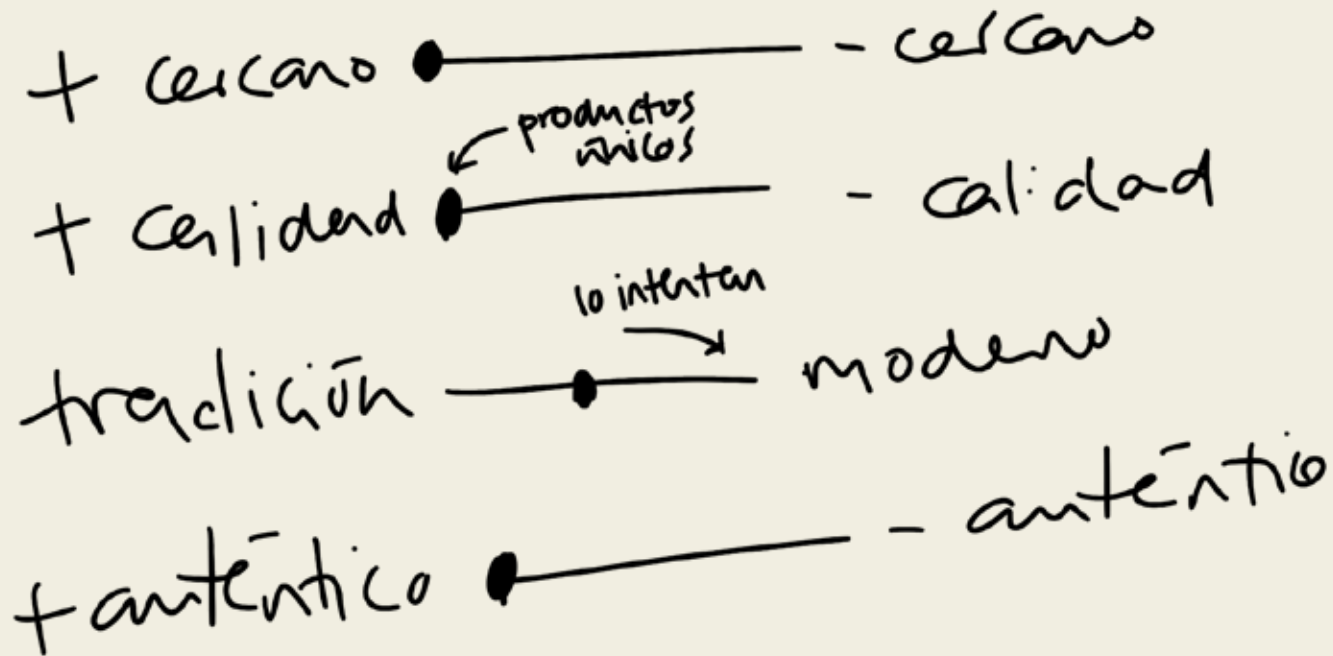 + cercano - cercano
productos
únicos
+ calidad - calidad
lo intentan
tradición moderno
+ auténtico - auténtico